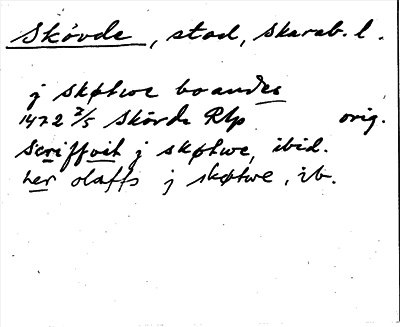 Skövde, stad, Skarab. l.
j skøtwe boandes
1472 2/5 Skövde Rlp orig.
Scriffvit j skøtwe, ibid.
her olaffs j skøtwe, ib.